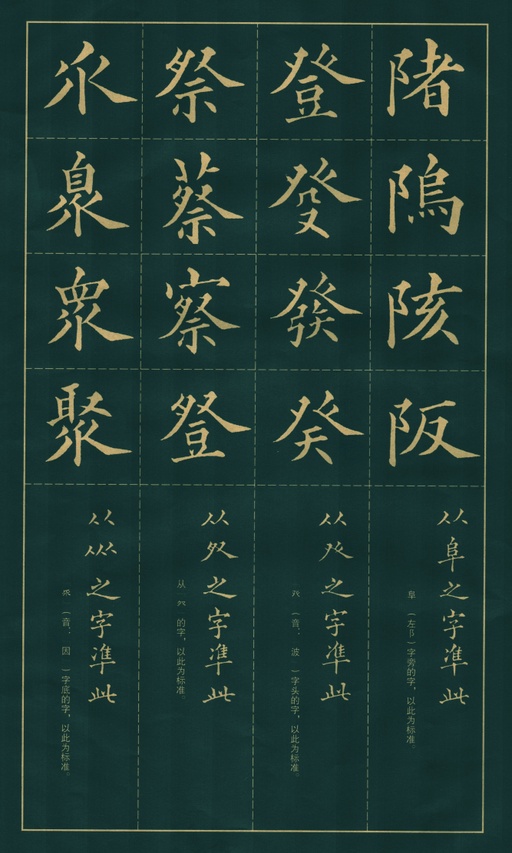 陼隖陔阪
从阜之字準此
阜（左阝）字旁的字，以此为标准。
登癹發癸
从癶之字準此
癶（音、波）字头的字，以此为标准。
祭蔡察豋
从之字準此
从的字，以此为标准。
乑臮眾聚
从乑之字準此
乑（音、因）字底的字，以此为标准。